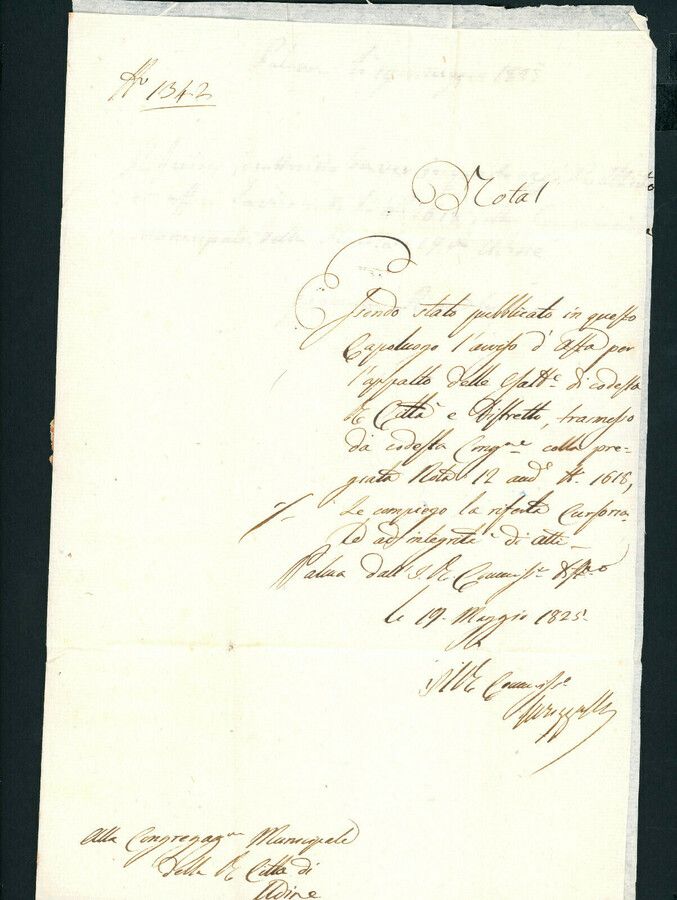 N° 1342
Nota!
Essendo stato pubblicato in questo
Capoluogo l'avviso d'Asta per
l'appalto delle Esatt.e di codesta
R Città e Distretto, trasmesso
da codesta Cong.ne colla pre-
giata Nota 12 and.e N. 1618,
Le compiego la riferta Cursoria-
le ad integrità di atti_
Palma dall'I. R. Commiss.to Dist.
le 19. Maggio 1825.
Il R Commiss.e
Alla Congregaz.ne Municipale
della R Città di
Udine